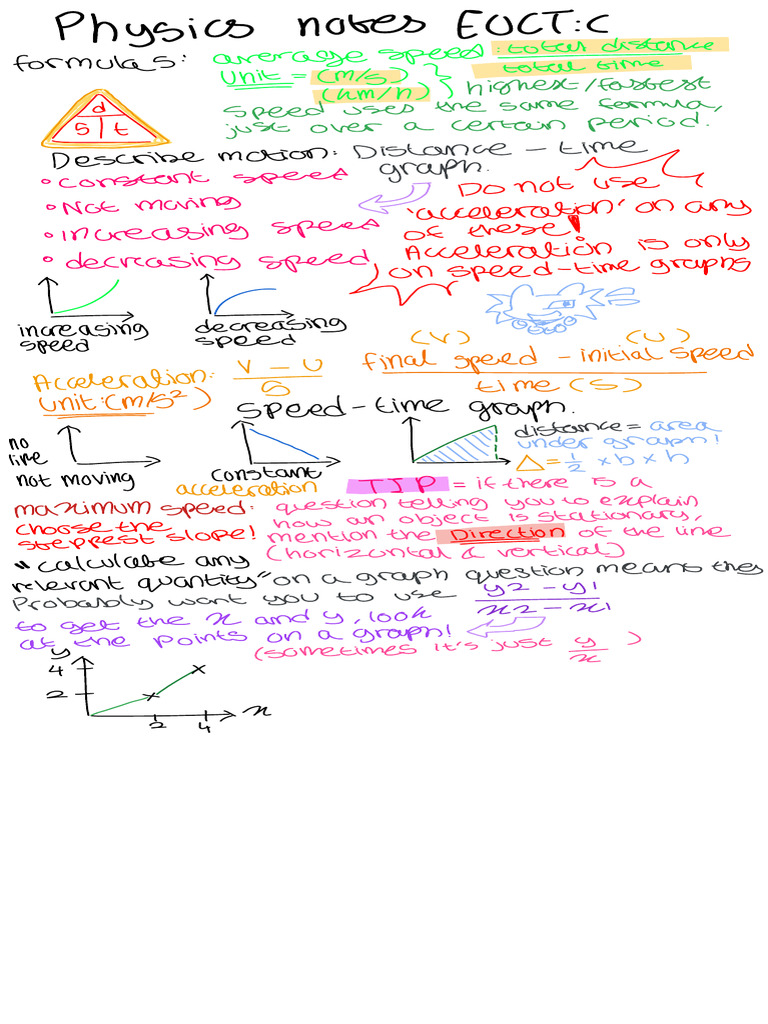 Physics notes EUCT:C
formulas: average speed: total distance
total time
Unit = (m/s)
(km/h) } highest/fastest
speed uses the same formula,
just over a certain period.
d
S t
Describe motion: Distance - time
graph.
• constant speed
• Not moving
• increasing speed
• decreasing speed
Do not use
'acceleration' on any
of these!
Acceleration is only
on speed-time graphs
increasing
speed
decreasing
speed
Acceleration: V - U
S
unit:(m/s²)
(V) (U)
final speed - initial speed
time (s)
speed-time graph.
no
line
not moving
constant
acceleration
distance = area
under graph!
△ = 1/2 × b × h
maximum speed:
choose the
steppest slope!
TIP = if there is a
question telling you to explain
how an object is stationary,
mention the Direction of the line
(horizontal & vertical)
"calculate any
relevant quantity" on a graph question means they
Probably want you to use y2 - y1
x2 - x1
to get the x and y, look
at the points on a graph!
(sometimes it's just y )
x
y
4
2
2 4 x